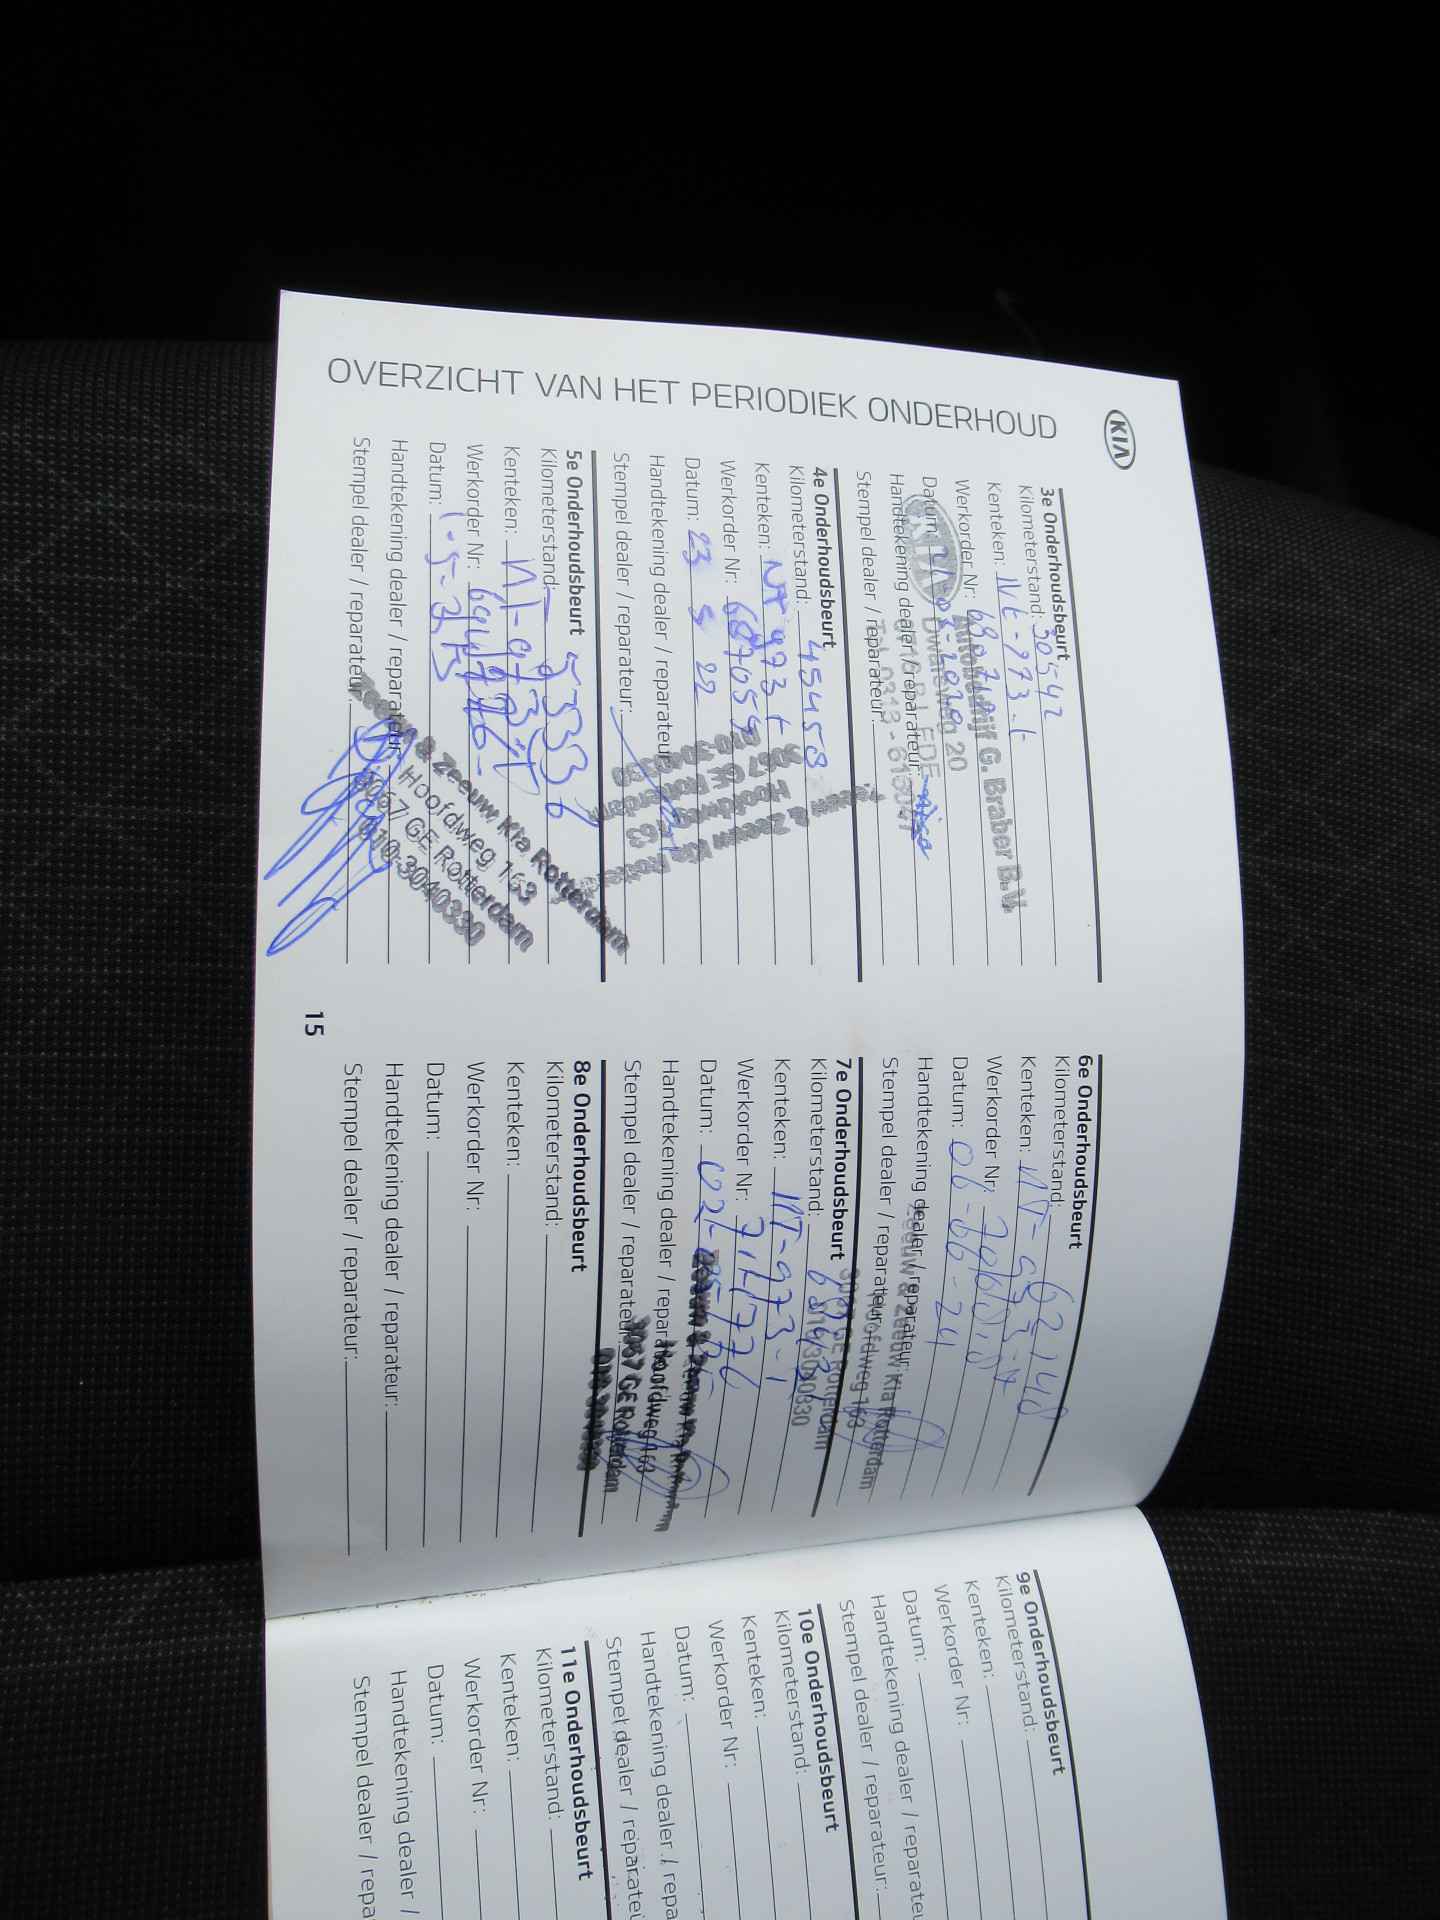 KIA
OVERZICHT VAN HET PERIODIEK ONDERHOUD
3e Onderhoudsbeurt
Kilometerstand: 30542
Kenteken: Nt-973-t
Werkorder Nr:
Datum:
Handtekening dealer / reparateur:
Stempel dealer / reparateur:
Autobedrijf G. Braber B.V.
Dwarsweg 20
4e Onderhoudsbeurt
Kilometerstand: 45458
Kenteken: NT 973 t
Werkorder Nr:
Datum: 23 5 22
Handtekening dealer / reparateur:
Stempel dealer / reparateur:
Zeeuw & Zeeuw Kia Rotterdam
Hoofdweg 163
3067 GE Rotterdam
010-3040330
5e Onderhoudsbeurt
Kilometerstand:
Kenteken: NT-973-T
Werkorder Nr:
Datum:
Handtekening dealer / reparateur:
Stempel dealer / reparateur:
Zeeuw & Zeeuw Kia Rotterdam
Hoofdweg 163
3067 GE Rotterdam
010-3040330
15
6e Onderhoudsbeurt
Kilometerstand:
Kenteken: NT-973-T
Werkorder Nr:
Datum: 06-06-24
Handtekening dealer / reparateur:
Stempel dealer / reparateur:
Zeeuw & Zeeuw Kia Rotterdam
Hoofdweg 163
3067 GE Rotterdam
010-3040330
7e Onderhoudsbeurt
Kilometerstand:
Kenteken: NT-973-T
Werkorder Nr:
Datum:
Handtekening dealer / reparateur:
Stempel dealer / reparateur:
Zeeuw & Zeeuw Kia Rotterdam
Hoofdweg 163
3067 GE Rotterdam
010-3040330
8e Onderhoudsbeurt
Kilometerstand:
Kenteken:
Werkorder Nr:
Datum:
Handtekening dealer / reparateur:
Stempel dealer / reparateur:
9e Onderhoudsbeurt
Kilometerstand:
Kenteken:
Werkorder Nr:
Datum:
Handtekening dealer / reparateu
Stempel dealer / reparateur:
10e Onderhoudsbeurt
Kilometerstand:
Kenteken:
Werkorder Nr:
Datum:
Handtekening dealer / repa
Stempel dealer / reparateu
11e Onderhoudsbeurt
Kilometerstand:
Kenteken:
Werkorder Nr:
Datum:
Handtekening dealer /
Stempel dealer / repa